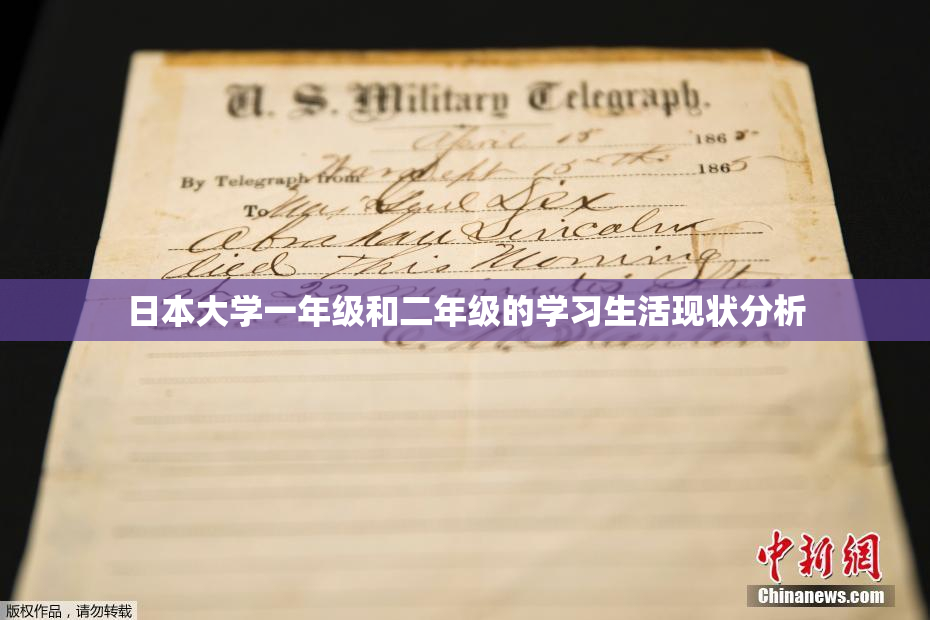 U. S. Military Telegraph.
April 15 1865
By Telegraph from War Dept 15th 1865
To Maj Genl Dix
Abraham Lincoln
died This Morning
22 minutes after
日本大学一年级和二年级的学习生活现状分析
中新网
Chinanews.com
版权作品，请勿转载